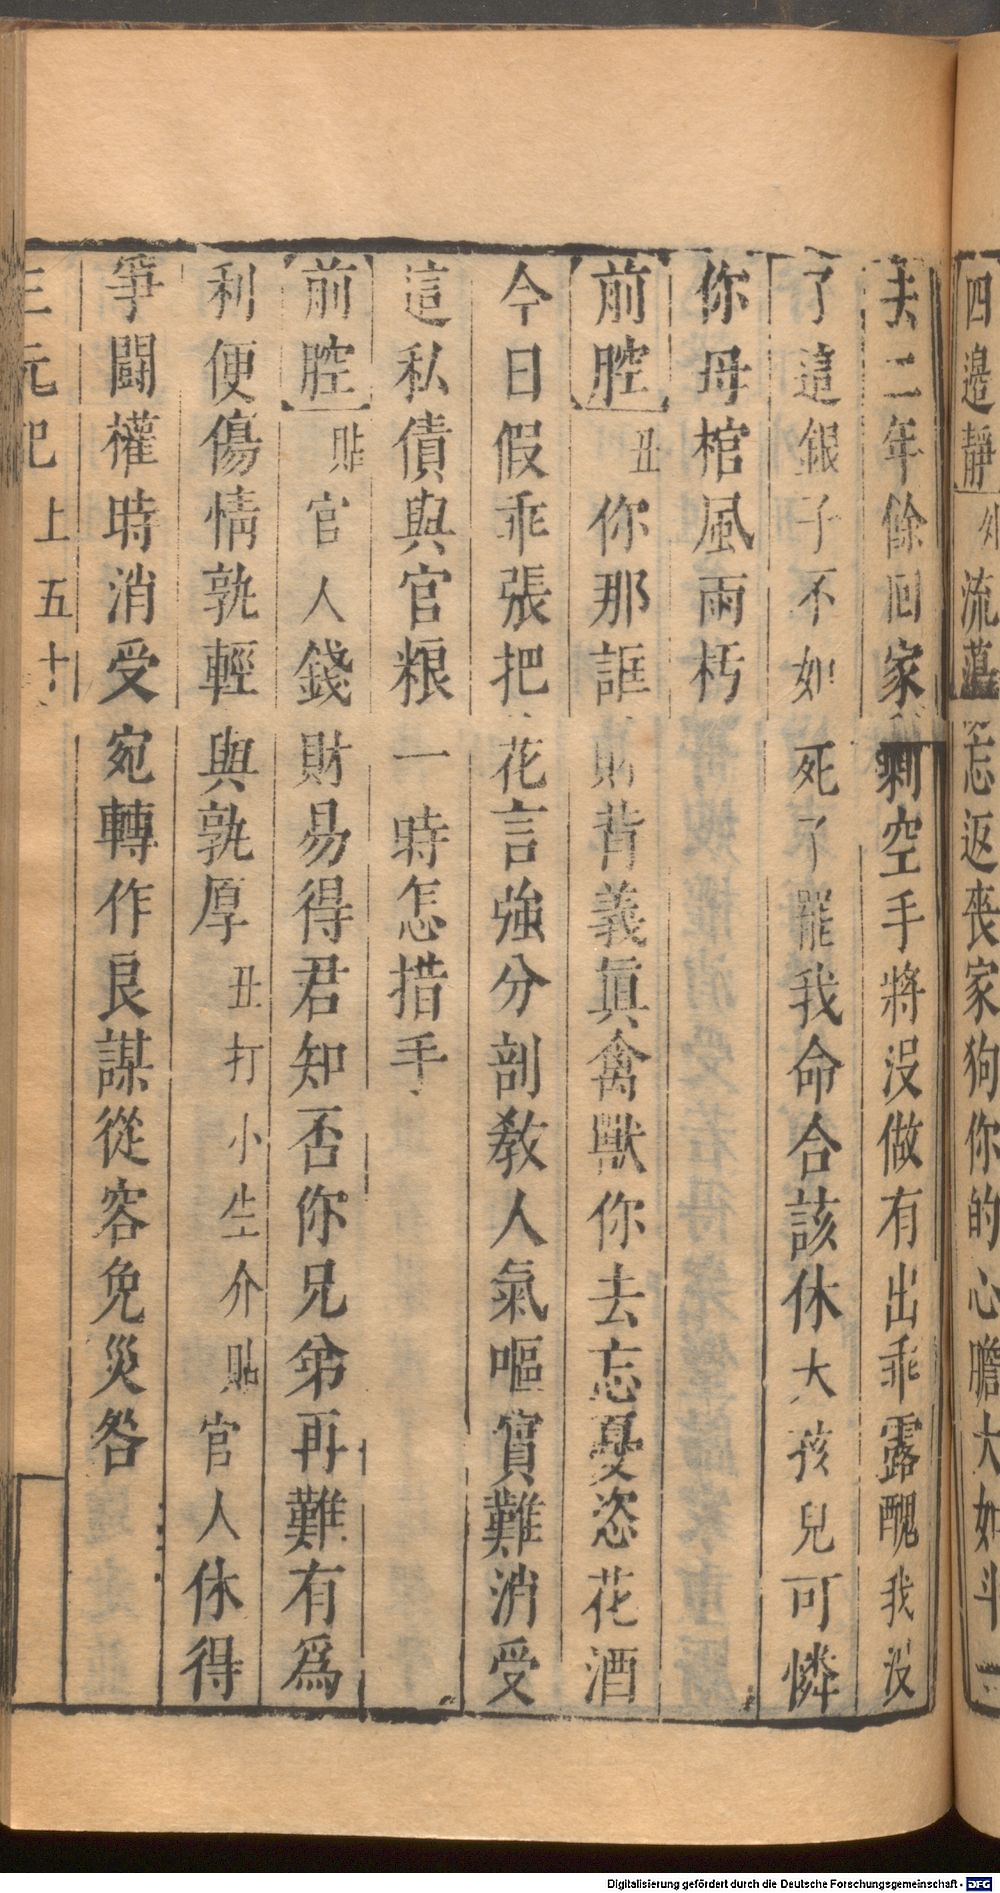 四邊靜外流蕩忘返喪家狗你的心膽大如斗一
去二年餘回家剩空手將没做有出乖露醜我没
了這銀子不如死了罷我命合該休大孩兒可憐
你母棺風雨朽
前腔丑你那誆財背義真禽獸你去忘憂恣花酒
今日假乖張把花言強分剖教人氣嘔實難消受
這私債與官粮一時怎措手
前腔貼官人錢財易得君知否你兄弟再難有爲
利便傷情孰輕與孰厚丑打小生介貼官人休得
爭鬪權時消受宛轉作良謀從容免災咎
三元记上五十
Digitalisierung gefördert durch die Deutsche Forschungsgemeinschaft - DFG